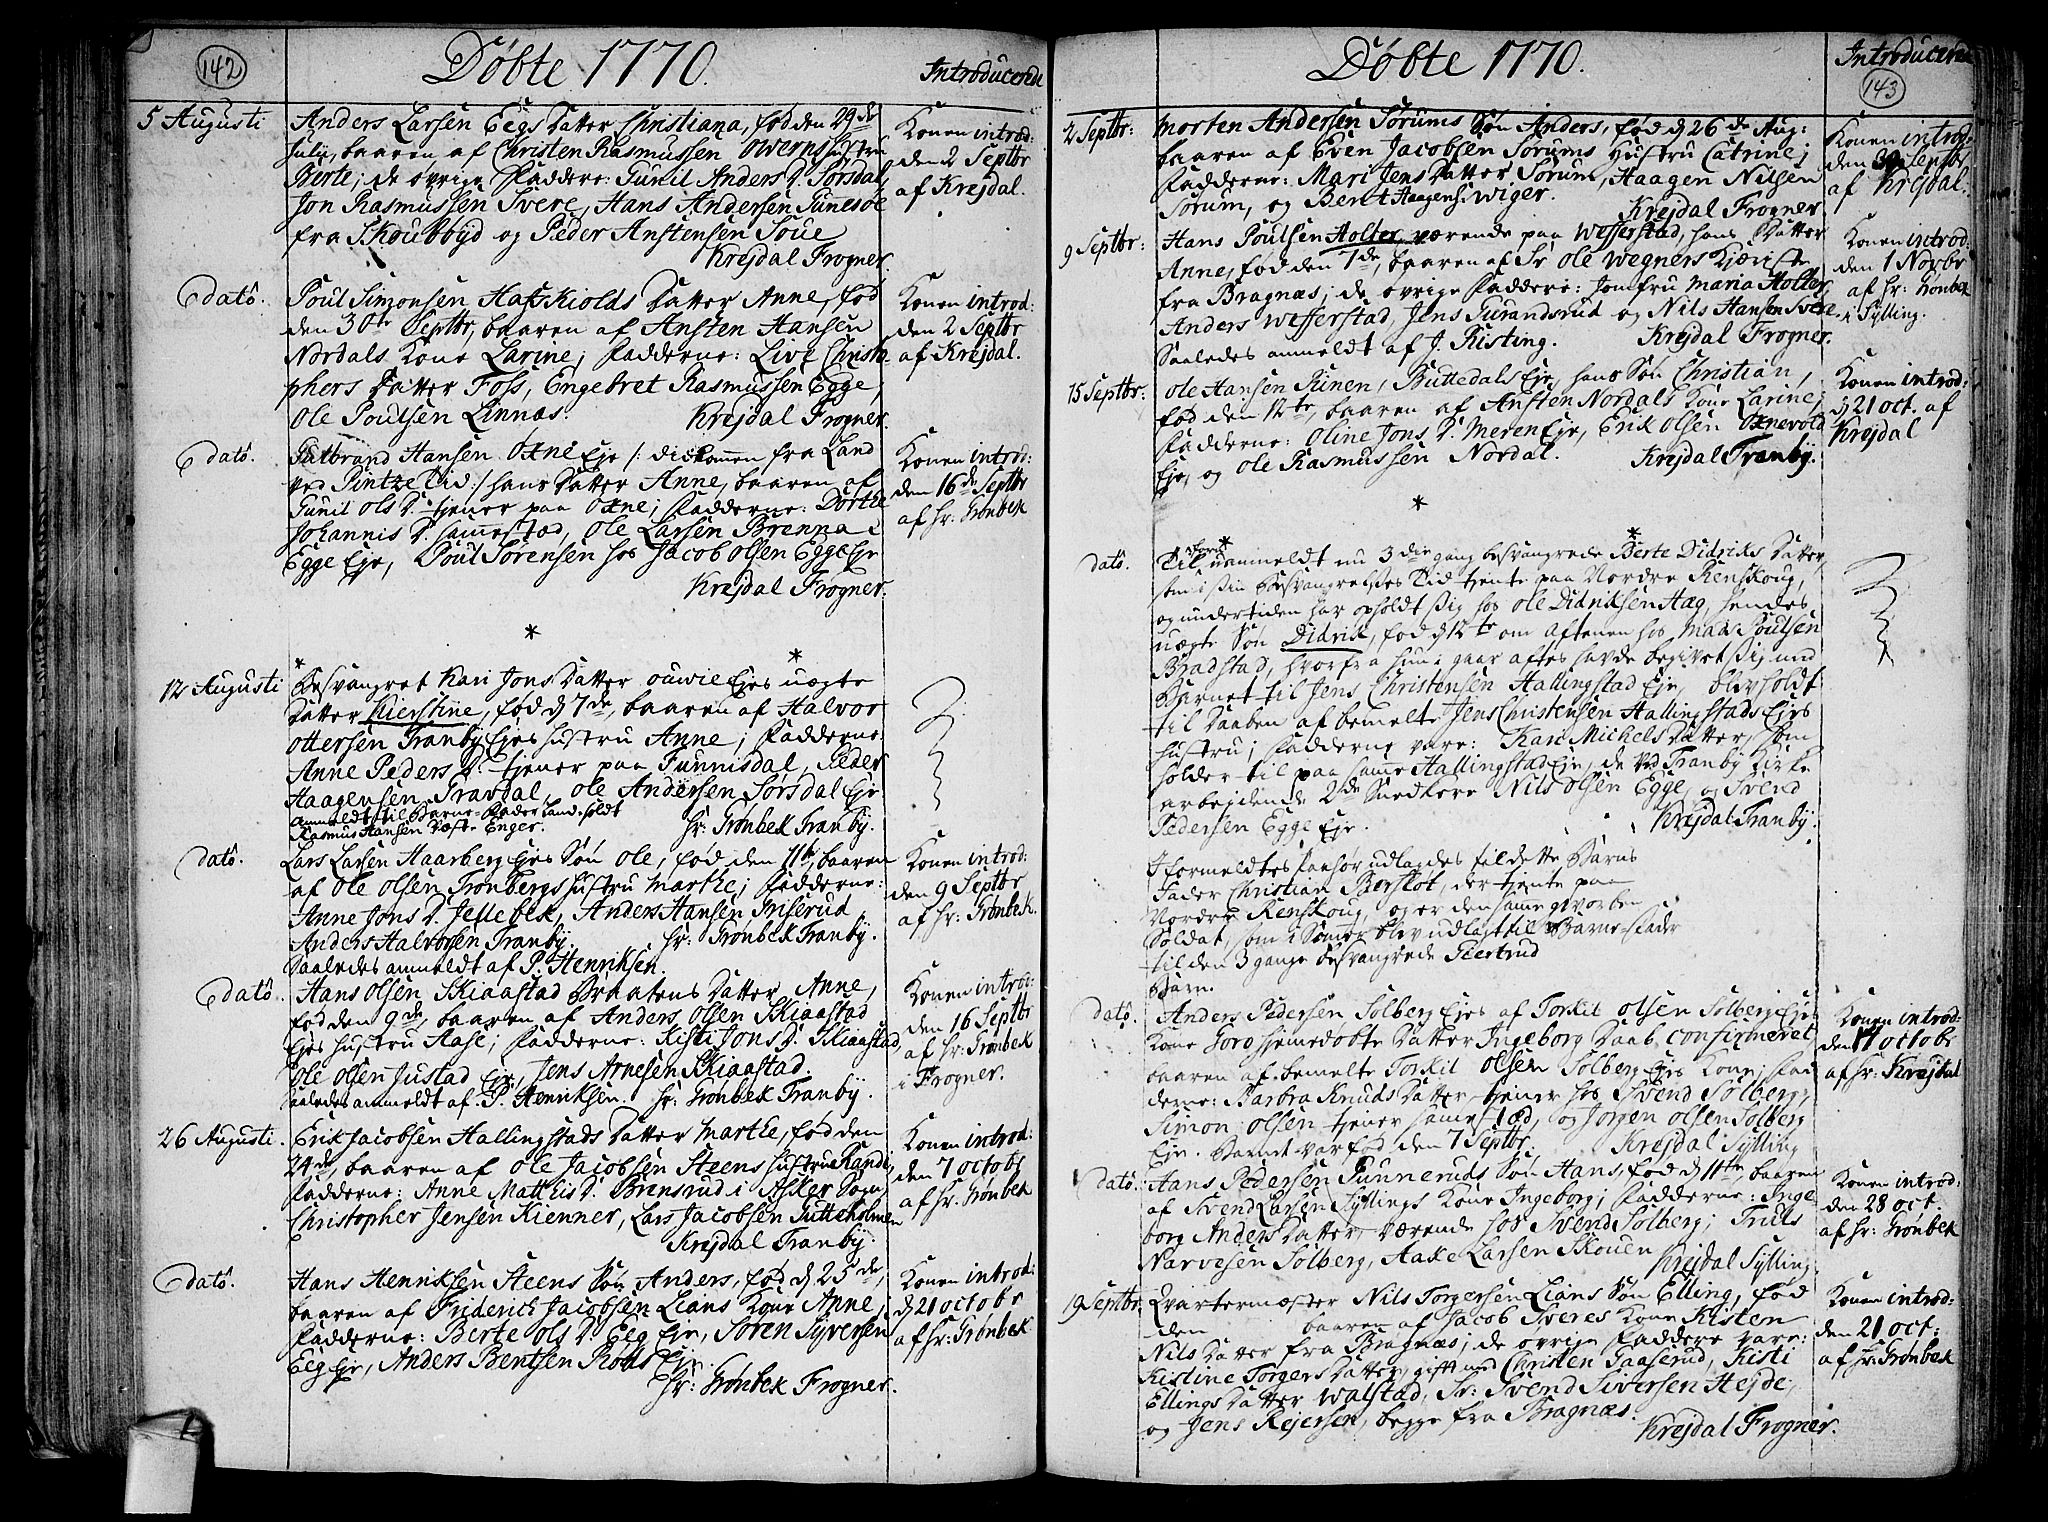 142
Döbte 1770.
Introducerede
5 Augusti
Anders Larsen Eegs Datter Christiana, fød den 29de
Julii, baaren af Christen Rasmussen Owerns Hustru
Berte; de øvrige Faddere: Gunil Anders D. Sørsdal,
Jon Rasmussen Svere, Hans Andersen Tunesøe
fra Skoubbyd og Peder Anstensen Soue
Krejdal Frogner.
Konen introd:
den 2 Septbr
af Krejdal.
dato.
Poul Simonsen Hafskiolds Datter Anne, fød
den 30te Septbr, baaren af Ansten Hansen
Nordals Kone Larine; Fadderne: Live Christo
phers Datter Foss, Engebret Rasmussen Egge,
Ole Poulsen Linnæs. Krejdal Frogner.
Konen introd:
den 2 Septbr
af Krejdal.
dato.
Gulbrand Hansen Oxne Eje /: didkommen fra Land
ved Pintze Tid :/ hans Datter Anne, baaren af
Gunil Ols D. tjener paa Oxne; Fadderne: Dorthe
Johannis D. sammestæd, Ole Larsen Brenna i
Egge Eje, Poul Sørensen hos Jacob Olsen Egge Eje
Krejdal Frogner.
Konen introd:
den 16de Septbr
af Hr: Grønbek
*
* *
12 Augusti
Besvangret Kari Jons Datter Ouwie Ejes uægte
Datter Kierstine, fød d 7de, baaren af Halvor
Ottersen Tranby Ejes Hustru Anne; Fadderne:
Anne Peders D. tjener paa Funnisdal, Peder
Haagensen Travdal, Ole Andersen Sørsdal Eje
anmeldt til Barne-Fader Land-Soldt
Rasmus Hansen Vest- Enger. Hr: Grønbek Tranby.
dato.
Lars Larsen Haarberg Ejes Søn Ole, fød den 11te, baaren
af Ole Olsen Tronbergs Hustru Marthe; Fadderne:
Anne Jons D. Jellebek, Anders Hansen Griserud
Anders Halvorsen Tranby. Hr: Grønbek Tranby.
Saaledes anmeldt af P. Henriksen.
Konen introd:
den 9 Septbr
af Hr: Grønbek.
dato.
Hans Olsen Skiaastad Braatens Datter Anne,
fød den 9de, baaren af Anders Olsen Skiaastad
Ejes Hustru Aase; Fadderne: Kisti Jons D. Skiaastad,
Ole Olsen Justad Eje, Jens Arnesen Skiaastad.
Saaledes anmeldt af P. Henriksen. Hr: Grønbek Tranby.
Konen introd:
den 16 Septbr
af Hr: Grønbek
i Frogner.
26 Augusti.
Erik Jacobsen Hallingstads Datter Marthe, fød den
24de, baaren af Ole Jacobsen Steens Hustru Randi,
Fadderne: Anne Matthis D. Brensrud i Asker Sogn,
Christopher Jensen Kienner, Lars Jacobsen Gutteholmen
Krejdal Tranby.
Konen introd:
den 7 Octobr
af Hr: Grønbek
dato.
Hans Henriksen Steens Søn Anders, fød d 25de,
baaren af Friderich Jacobsen Lians Kone Anne;
Fadderne: Berte Ols D. Eeg Eje, Søren Syversen
Eeg Eje, Anders Bentsen Røds Eje.
Hr: Grønbek Frogner.
Konen introd:
d 21 Octobr
af Hr: Grønbek
Döbte 1770.
143
2 Septbr:
Morten Andersen Sørums Søn Anders, fød d 26de Aug:
baaren af Even Jacobsen Sørums Hustru Catrine;
Fadderne: Mari Jens Datter Sørum, Haagen Nilsen
Sørum, og Bent Haagens: Wiger. Krejdal Frogner
Konen introd:
den 30 Septbr
af Krejdal.
9 Septbr:
Hans Poulsen Holter, værende paa Wefferstad, hans Datter
Anne, fød den 7de, baaren af Sr Ole Wegners Kjæriste
fra Bragnæs; de øvrige Faddere: Jomfru Maria Holter,
Anders Wefferstad, Jens Gurandsrud og Nils Hansen Svere.
Saaledes anmeldt af J. Kisting. Krejdal Frogner.
Konen introd:
den 1 Novbr
af Hr: Grønbek
i Sylling.
15 Septbr:
Ole Hansen Rünen, Buttedals Eje hans Søn Christian,
fød den 12te, baaren af Ansten Nordals Kone Larine;
Fadderne: Oline Jons D. Meren Eje, Erik Olsen Oxnevold
Eje, og Ole Rasmussen Nordal. Krejdal Tranby.
Konen introd:
d 21 Oct. af
Krejdal
*
* *
dato.
Til anmeldt nu 3die gang besvangrede Berte Didriks Datter,
som i sin Besvangrelses Tid tjente paa Nordre Renskoug,
og undertiden har opholdt sig hos Ole Didriksen Hæg, hendes
uægte Søn Didrik, fød d 12te om Aftenen hos Mads Poulsen
Bradstad, hvorfra hun i gaar aftes havde begivet sig med
Barnet til Jens Christensen Hallingstad Eje, blev holdt
til Daaben af bemelte Jens Christensen Hallingstads Ejes
Hustru; Fadderne vare: Kari Michels Datter, som
holder til paa samme Hallingstad Eje, de ved Tranby Kirke
arbejdende 2de Snedkere Nils Olsen Egge, og Svend
Pedersen Egge Eje. Krejdal Tranby.
Fader Christian Berskot, der tjente paa
Nordre Renskoug, og er den samme gevorben
Soldat, som i Sommer blev udlagt til Barne-Fader
til den 3 gange besvangrede Giertrud
Barn.
dato.
Anders Pedersen Solberg Ejes af Torkil Olsen Solberg Ejes
Kone Goro hjemedøbte Datter Ingeborg Daab confirmeret
baaren af bemelte Torkil Olsen Solberg Ejes Kone; Fad
derne: Barbra Knuds Datter tjener hos Svend Solberg,
Simon Olsen tjener samestæd, og Jørgen Olsen Solberg
Eje. Barnet var fød den 7 Septbr. Krejdal Sylling
Konen introd:
den 17 Octobr
af Hr: Krejdal
dato.
Hans Pedersen Gunneruds Søn Hans, fød d 11te, baaren
af Svend Larsen Syllings Kone Ingeborg; Fadderne: Inge
borg Anders Datter, værende hos Svend Solberg; Truls
Narvesen Solberg, Aake Larsen Skouen Krejdal Sylling
Konen introd:
den 28 Oct.
af Hr: Grønbek
19 Septbr.
Qvartermæster Nils Torgersen Lians Søn Elling, fød
den baaren af Jacob Sveres Kone Kisten
Nils Datter fra Bragnæs; de øvrige Faddere vare:
Kistine Torgers Datter, gift med Christen Gaaserud, Kisti
Ellings Datter Walstad, Sr: Svend Siversen Hejde,
og Jens Rejersen, begge fra Bragnæs.
Krejdal Frogner.
Konen introd:
den 21 Oct:
af Hr: Grønbek